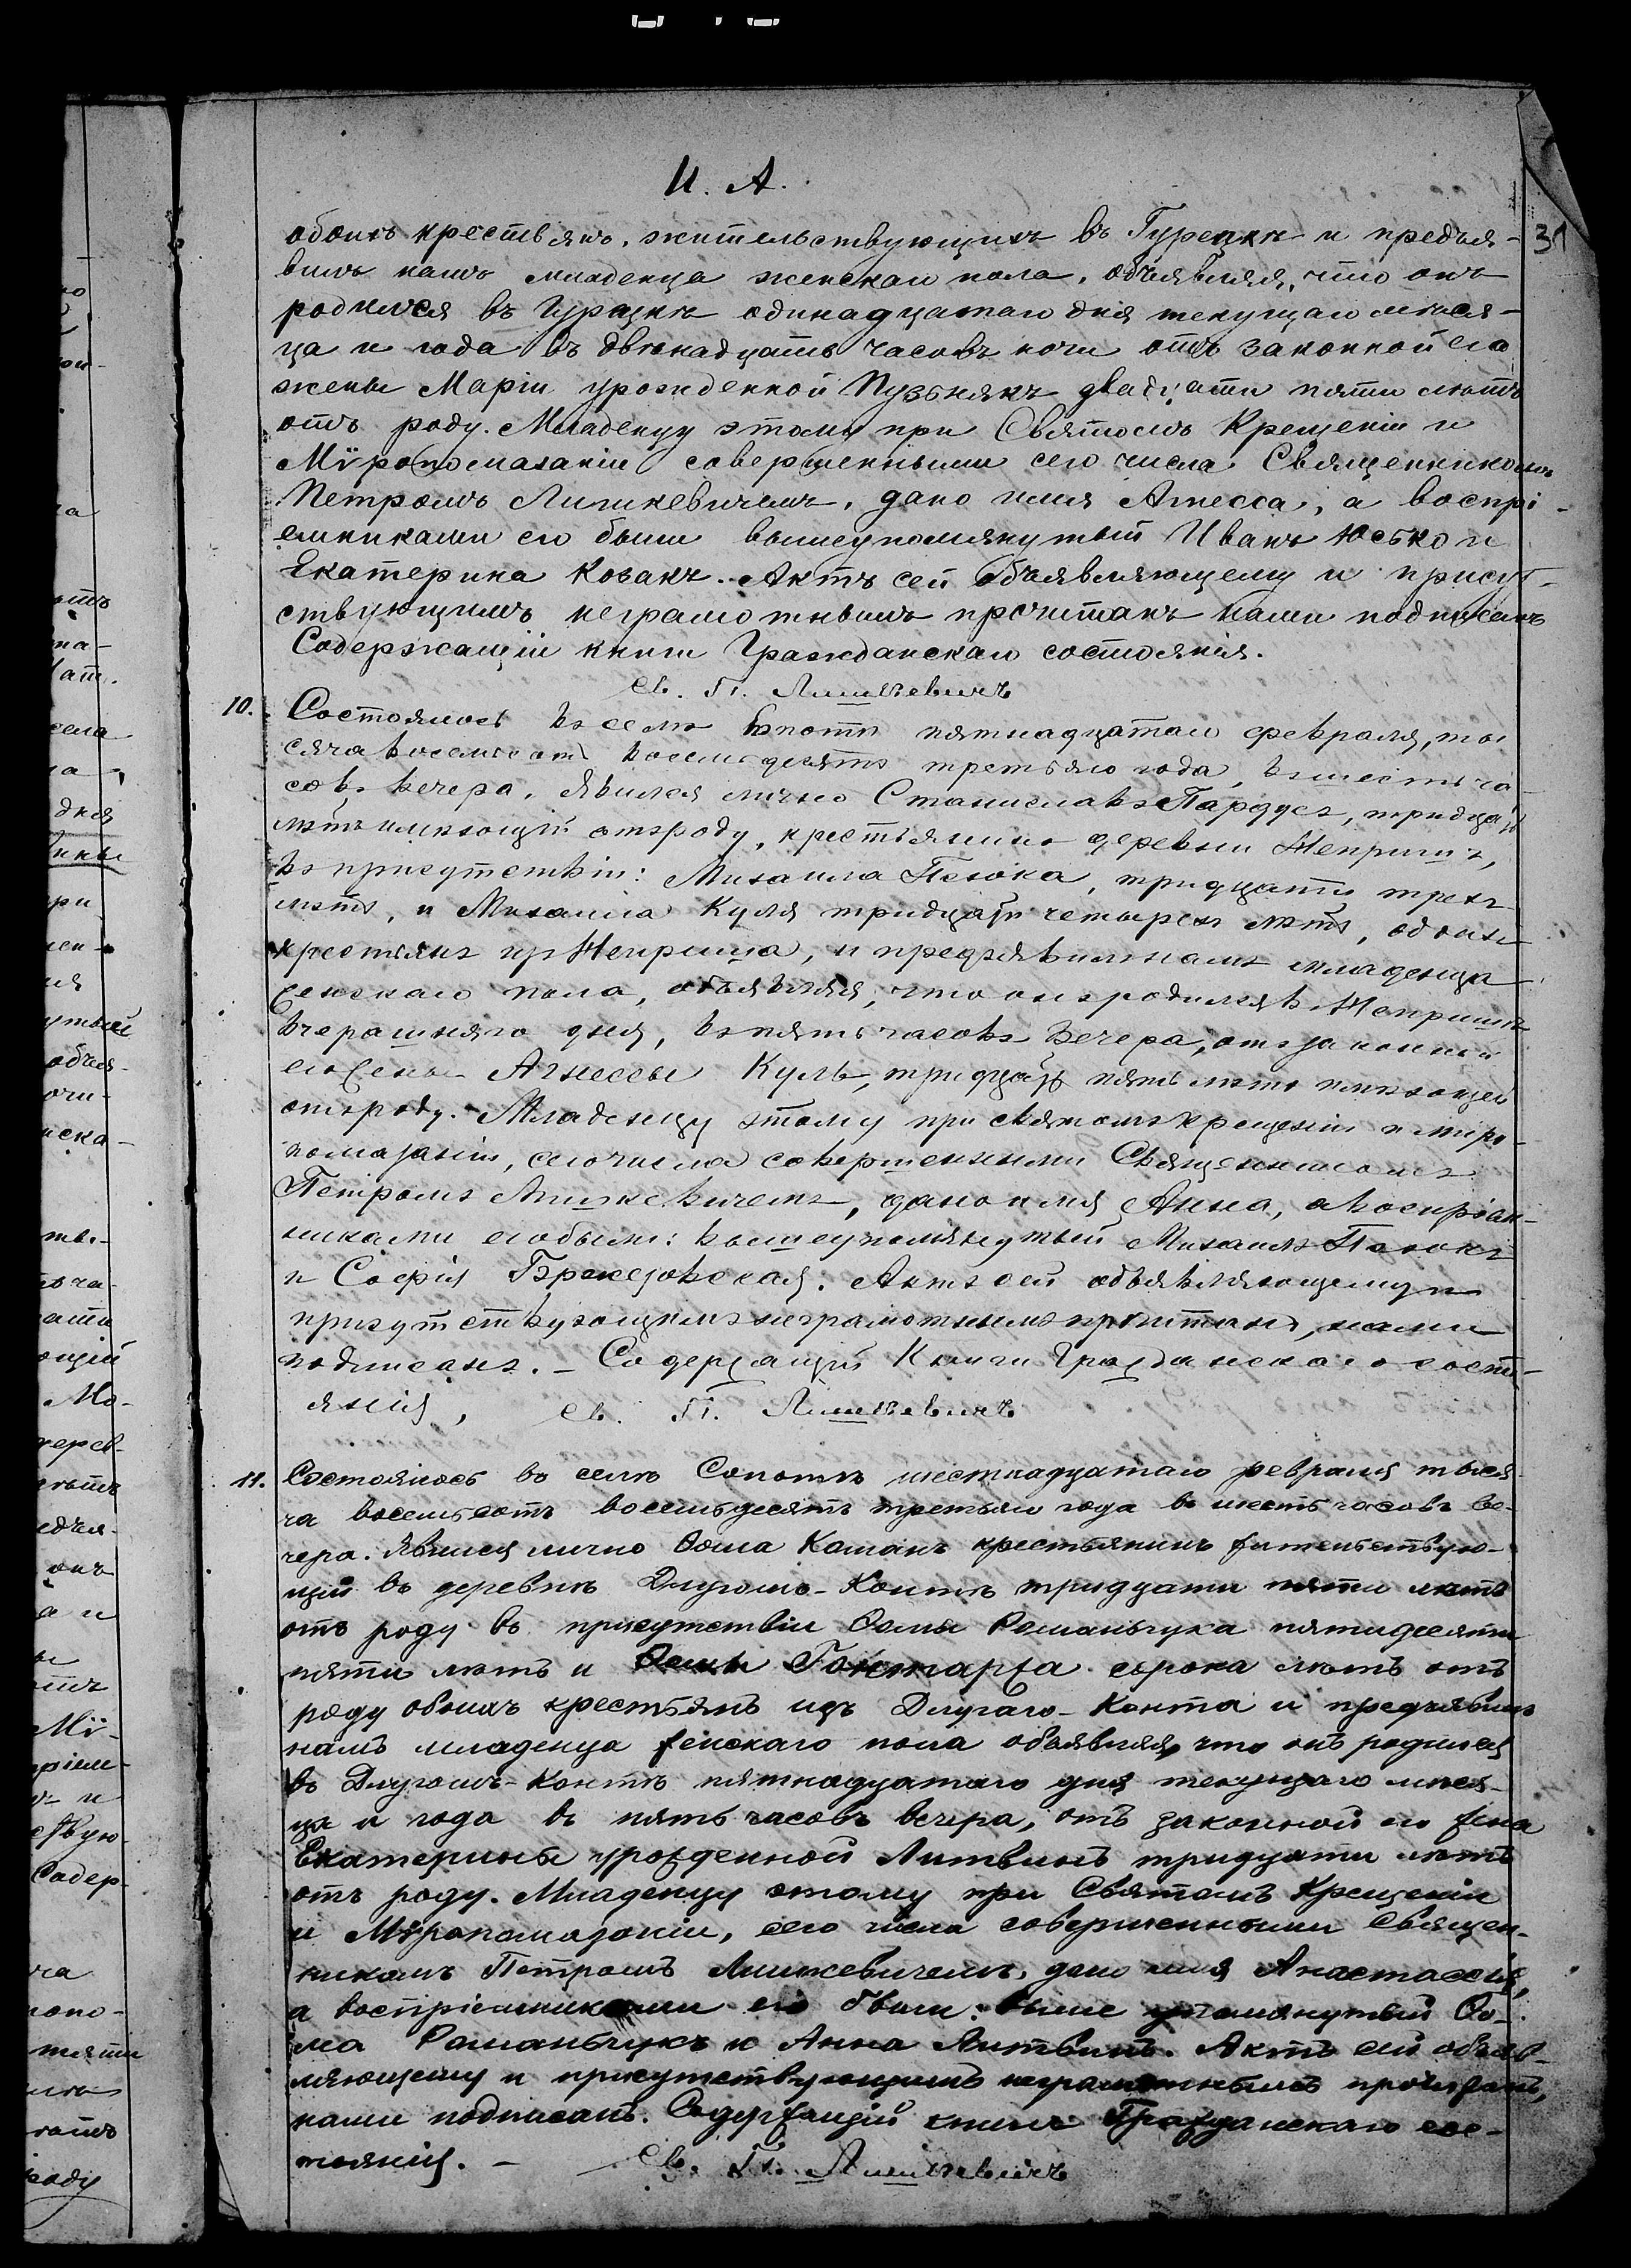 И. А.
31
обоихъ крестьянъ, жительствующихъ въ Гурецкѣ и предъя-
вилъ намъ младенца женскаго пола, объявляя, что онъ
родился въ Гурецкѣ одинадцатаго дня текущаго мѣся-
ца и года въ двѣнадцать часовъ ночи отъ законной его
жены Маріи урожденной Пузьнякъ двадцати пяти лѣтъ
отъ роду. Младенцу этому при Святомъ Крещеніи и
Мѵропомазаніи совершенными сего числа Священникомъ
Петромъ Лишкевичемъ, дано имя Агнесса, а воспрі-
емниками его были вышеупомянутый Иванъ Юсько и
Екатерина Козакъ. Актъ сей объявляющему и присут-
ствующимъ неграмотнымъ прочитанъ нами подписанъ
Содержащій книги Гражданскаго состоянія.
Св. П. Лишкевичъ
10. Состоялось въ селѣ Сопотѣ пятнадцатаго февраля, ты
сяча восемьсотъ восемьдесятъ третьяго года, въ шесть ча-
совъ вечера. Явился лично Станиславъ Пардусъ, тридцать
лѣтъ имѣющій отъ роду, крестьянинъ деревни Непришъ,
въ присутствіи: Михаила Пелюка, тридцати трехъ
лѣтъ, и Михаила Куля тридцати четырехъ лѣтъ, обоихъ
крестьянъ изъ Неприша, и предъявилъ намъ младенца
женскаго пола, объявляя, что онъ родился въ Непришѣ
вчерашняго дня, въ пять часовъ вечера, отъ законной
его жены Агнессы Куль, тридцать пять лѣтъ имѣющей
отъ роду. Младенцу этому при святомъ крещеніи и мѵро-
помазаніи, сего числа совершенными Священникомъ
Петромъ Лишкевичемъ, дано имя Анна, а воспріем-
никами его были: вышеупомянутый Михаилъ
и Софія. Актъ сей объявляющему и
присутствующимъ неграмотнымъ прочитанъ, нами
подписанъ. – Содержащій Книги Гражданскаго состо-
янія, Св. П. Лишкевичъ
11. Состоялось въ селѣ Сопотѣ шестнадцатаго февраля тыся
ча восемьсотъ восемьдесятъ третьяго года въ шесть часовъ ве-
чера. Явился лично Ѳома Команъ крестьянинъ жительствую-
щій въ деревнѣ Длугомъ-Контѣ тридцати пяти лѣтъ
отъ роду въ присутствіи Ѳомы Романьчука пятидесяти
пяти лѣтъ и Ѳомы Гонтаржа сорока лѣтъ отъ
роду обоихъ крестьянъ изъ Длугаго-Конта и предъявилъ
намъ младенца женскаго пола объявляя, что онъ родился
въ Длугомъ-Контѣ пятнадцатаго дня текущаго мѣся-
ца и года въ пять часовъ вечера, отъ законной его жены
Екатерины урожденной Литвинъ тридцати лѣтъ
отъ роду. Младенцу этому при Святомъ Крещеніи
и Мѵропомазаніи, сего числа совершенными Священ-
никомъ Петромъ Лишкевичемъ, дано имя Анастассія,
а воспріемниками его были: выше упомянутый Ѳо-
ма Романьчукъ и Анна Литвинъ. Актъ сей объяв-
ляющему и присутствующимъ неграмотнымъ прочитанъ,
нами подписанъ. Содержащій книги Гражданскаго сос-
тоянія. – Св. П. Лишкевичъ